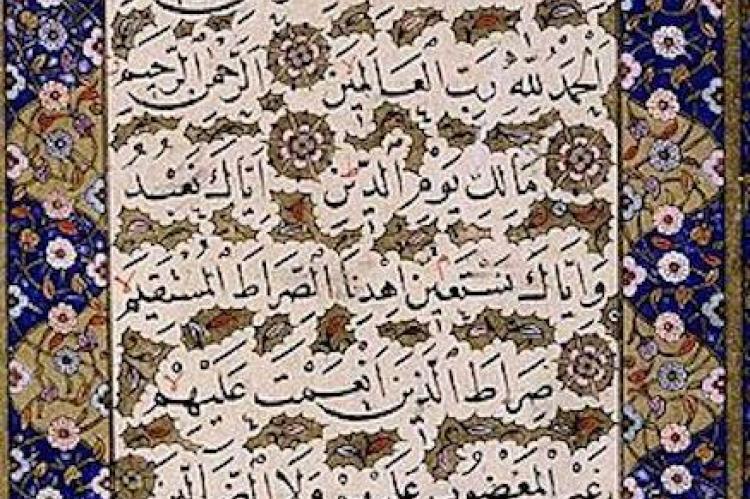 الْحَمْدُ لِلَّهِ رَبِّ الْعَالَمِينَ الرَّحْمٰنِ الرَّحِيمِ
مَالِكِ يَوْمِ الدِّينِ اِيَّاكَ نَعْبُدُ
وَاِيَّاكَ نَسْتَعِينُ اِهْدِنَا الصِّرَاطَ الْمُسْتَقِيمَ
صِرَاطَ الَّذِينَ اَنْعَمْتَ عَلَيْهِمْ
غَيْرِ الْمَغْضُوبِ عَلَيْهِمْ وَلَا الضَّالِّينَ